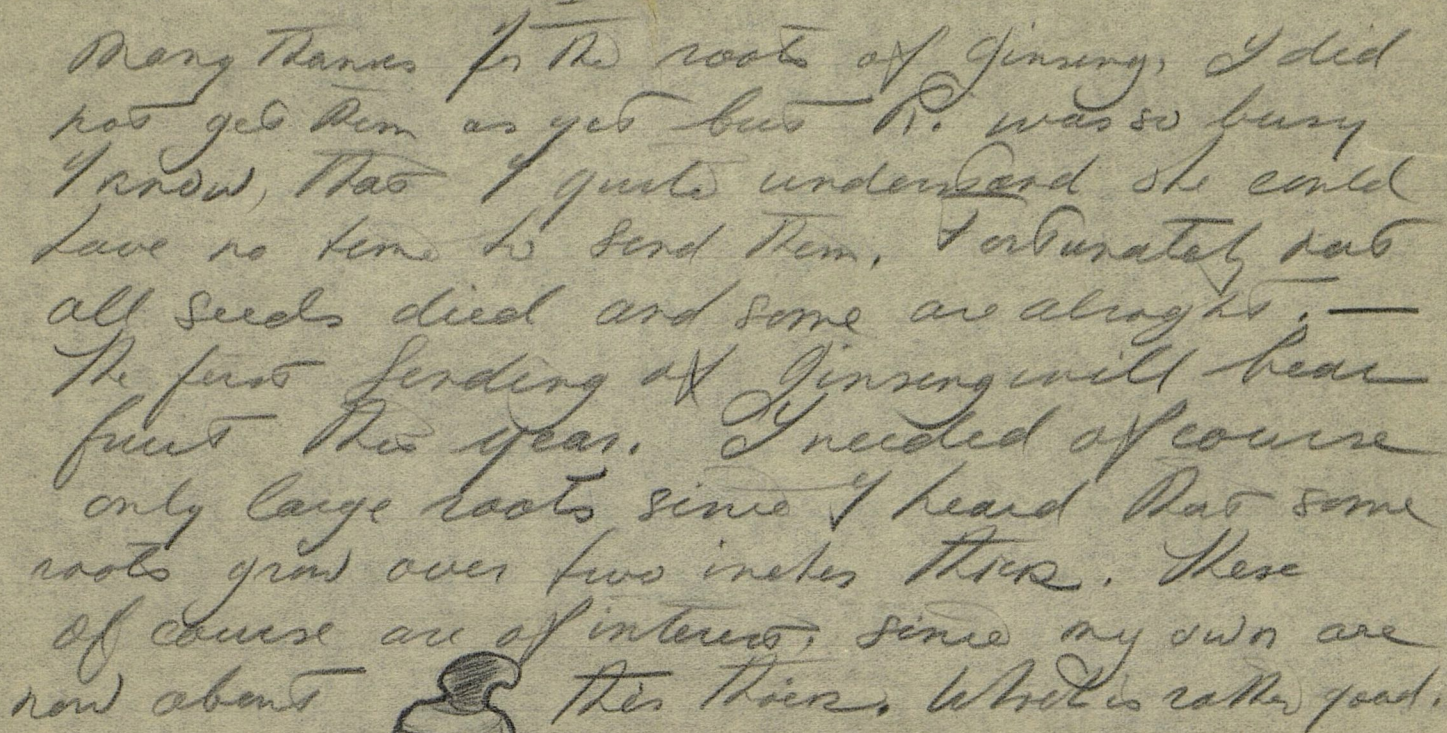 Many thanks for the roots of Ginseng, I did
not get them as yet but R. was so busy
I know, that I quite understand she could
have no time to send them. Fortunately not
all seeds died and some are alright. —
The first sending of Ginseng will bear
fruit this year. I needed of course
only large roots since I heard that some
roots grow over two inches thick. These
of course are of interest, since my own are
now about this thick. Which is rather good.